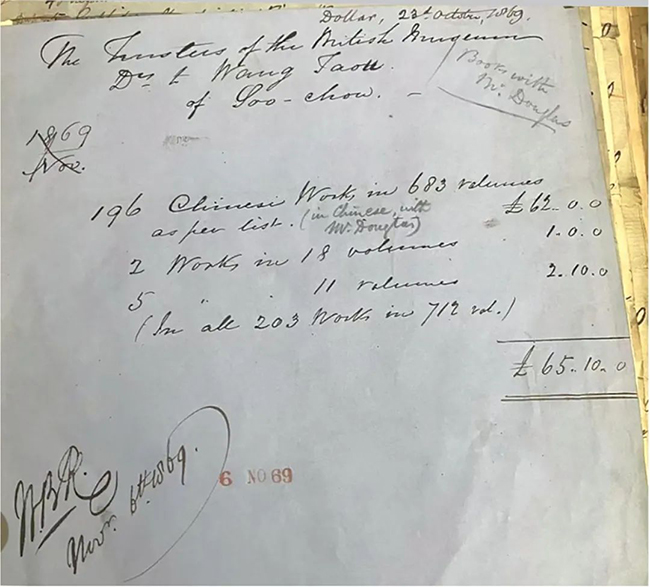 Dollar, 23d October, 1869.
The Trustees of the British Museum
Drs to Wang Taou
of Soo-chow. —
Books with
Mr. Douglas
1869
Nov.
196 Chinese Works in 683 volumes
as per list. (in Chinese with
Mr Douglas)
£62..0..0
2 Works in 18 volumes
1..0..0
5 " 11 volumes
2..10..0
(In all 203 Works in 712 vol.)
£65..10..0
Novr. 6th 1869.
6 NO 69